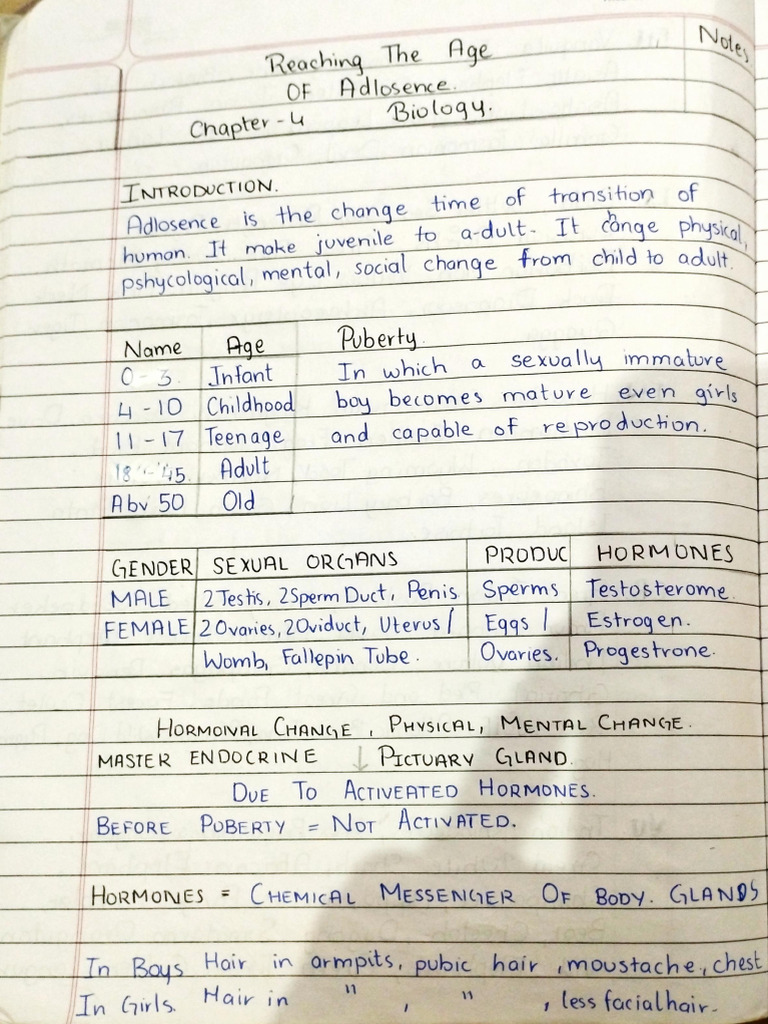 Notes
Reaching The Age
OF Adlosence.
Chapter-4 Biology.
INTRODUCTION.
Adlosence is the change time of transition of
human. It make juvenile to a-dult. It change physical,
pshycological, mental, social change from child to adult.
Name Age Puberty.
0-3 Infant In which a sexually immature
4-10 Childhood boy becomes mature even girls
11-17 Teenage and capable of reproduction.
18-45 Adult
Abv 50 Old
GENDER SEXUAL ORGANS PRODUC HORMONES
MALE 2 Testis, 2 Sperm Duct, Penis Sperms Testosterome.
FEMALE 2 Ovaries, 2 Oviduct, Uterus/ Eggs / Estrogen.
Womb, Fallepin Tube. Ovaries. Progestrone.
HORMONAL CHANGE, PHYSICAL, MENTAL CHANGE.
MASTER ENDOCRINE ↓ PICTUARY GLAND.
DUE TO ACTIVEATED HORMONES.
BEFORE PUBERTY = NOT ACTIVATED.
HORMONES = CHEMICAL MESSENGER OF BODY. GLANDS
In Boys Hair in armpits, pubic hair, moustache, chest
In Girls. Hair in " , " , less facial hair.